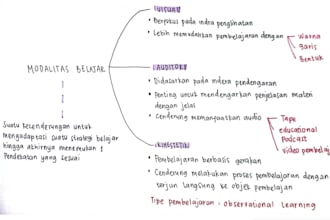 VISUAL
• Berfokus pada indra penglihatan
• Lebih memudahkan pembelajaran dengan
Warna
Garis
Bentuk
MODALITAS BELAJAR
AUDITORY
• Didasarkan pada indera pendengaran
• Penting untuk mendengarkan penjelasan materi
dengan jelas
• Cenderung memanfaatkan audio
Tape
educational
Podcast
video pembelaj
Suatu kecenderungan untuk
mengadaptasi suatu strategi belajar
hingga akhirnya menemukan
Pendekatan yang sesuai
KINESTETIK
• Pembelajaran berbasis gerakan
• Cenderung melakukan proses pembelajaran dengan
terjun langsung ke objek pembelajaran
Tipe pembelajaran : observational learning